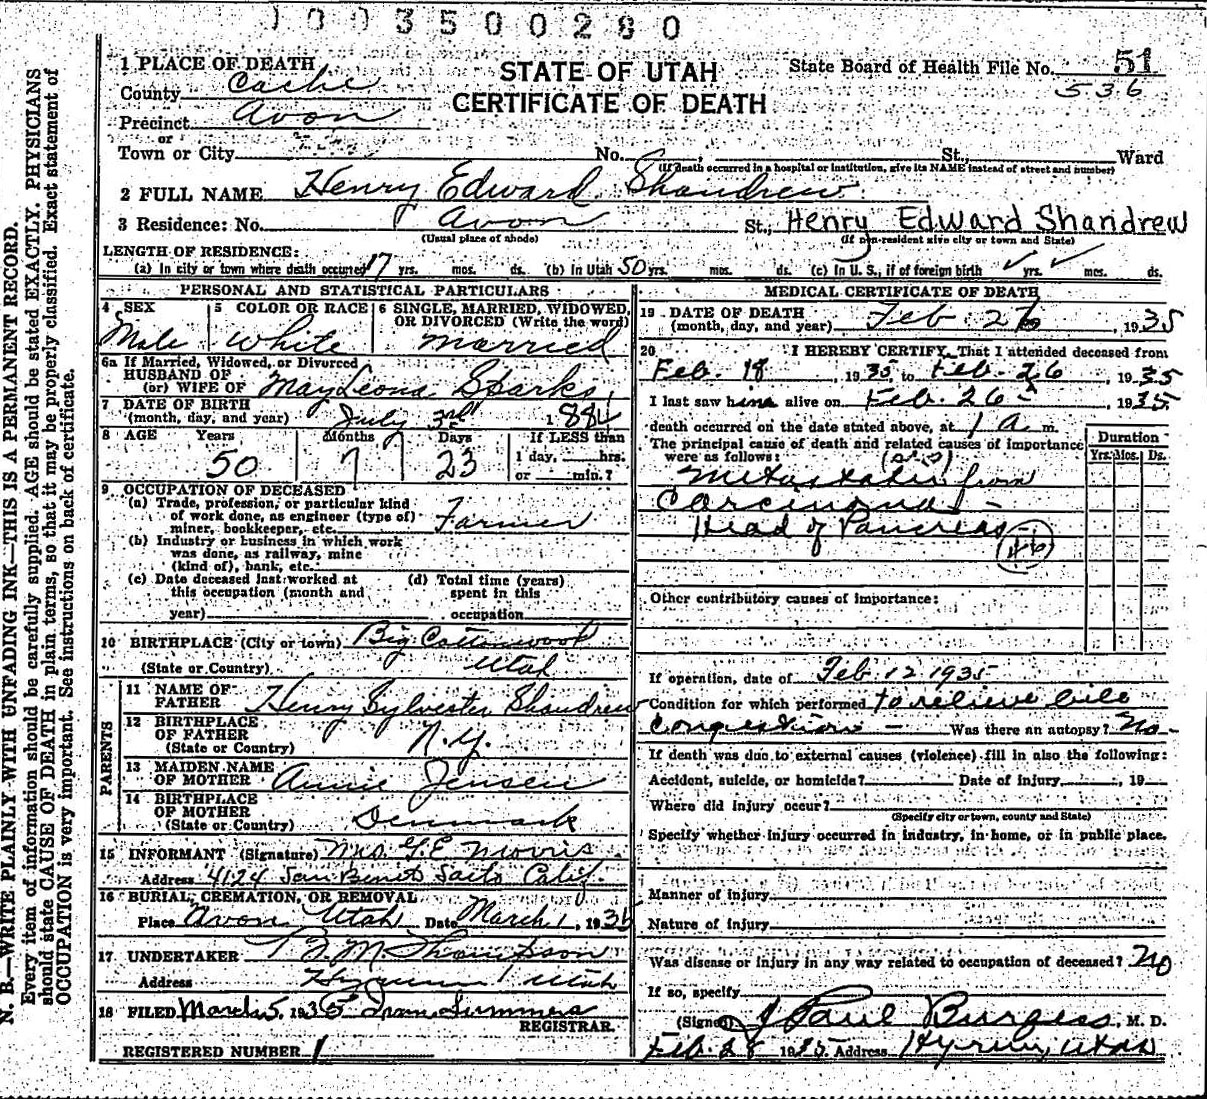 1003500280
1 PLACE OF DEATH
STATE OF UTAH
State Board of Health File No. 51
County Cache
CERTIFICATE OF DEATH
536
Precinct Avon
or
Town or City No. , St., Ward
(If death occurred in a hospital or institution, give its NAME instead of street and number)
2 FULL NAME Henry Edward Shandrew
3 Residence: No. Avon St., Henry Edward Shandrew
(Usual place of abode) (If non-resident give city or town and State)
LENGTH OF RESIDENCE:
(a) In city or town where death occurred 17 yrs. mos. ds. (b) In Utah 50 yrs. mos. ds. (c) In U. S., if of foreign birth ✓ yrs. ✓ mos. ds.
PERSONAL AND STATISTICAL PARTICULARS
4 SEX 5 COLOR OR RACE 6 SINGLE, MARRIED, WIDOWED,
OR DIVORCED (Write the word)
Male White Married
6a If Married, Widowed, or Divorced
HUSBAND OF
(or) WIFE OF May Leona Sparks
7 DATE OF BIRTH
(month, day, and year) July 3rd 1884
8 AGE Years Months Days If LESS than
1 day, hrs.
50 7 23 or min.?
9 OCCUPATION OF DECEASED
(a) Trade, profession, or particular kind
of work done, as engineer (type of)
miner, bookkeeper, etc. Farmer
(b) Industry or business in which work
was done, as railway, mine
(kind of), bank, etc.
(c) Date deceased last worked at
this occupation (month and
year)
(d) Total time (years)
spent in this
occupation
10 BIRTHPLACE (City or town) Big Cottonwood
(State or Country) Utah
PARENTS
11 NAME OF
FATHER Henry Sylvester Shandrew
12 BIRTHPLACE
OF FATHER N.Y.
(State or Country)
13 MAIDEN NAME
OF MOTHER Annie Jensen
14 BIRTHPLACE
OF MOTHER
(State or Country) Denmark
15 INFORMANT (Signature) Mrs. G. E Morris
Address 4124 San Benito Calif
16 BURIAL, CREMATION, OR REMOVAL
Place Avon Utah Date March 1, 1935
17 UNDERTAKER M. Thompson
Address Hyrum Utah
18 FILED March 5, 1935 Summers
REGISTRAR.
REGISTERED NUMBER 1
MEDICAL CERTIFICATE OF DEATH
19 DATE OF DEATH
(month, day, and year) Feb 26, 1935
20 I HEREBY CERTIFY, That I attended deceased from
Feb. 18, 1935 to Feb. 26, 1935
I last saw him alive on Feb. 26, 1935
death occurred on the date stated above, at 1 A m.
The principal cause of death and related causes of importance
were as follows:
Duration
Yrs. Mos. Ds.
Metastatis from
Carcinoma -
Head of Pancreas
(46)
Other contributory causes of importance:
If operation, date of Feb 12 1935
Condition for which performed to relieve bile
Congestion - Was there an autopsy? No -
If death was due to external causes (violence) fill in also the following:
Accident, suicide, or homicide? Date of injury , 19
Where did injury occur?
(Specify city or town, county and State)
Specify whether injury occurred in industry, in home, or in public place.
Manner of injury
Nature of injury
Was disease or injury in any way related to occupation of deceased? No
If so, specify
(Signed) J Paul Burgess, M. D.
Feb. 28 1935 Address Hyrum, Utah
N. B.—WRITE PLAINLY WITH UNFADING INK—THIS IS A PERMANENT RECORD.
Every item of information should be carefully supplied. AGE should be stated EXACTLY. PHYSICIANS
should state CAUSE OF DEATH in plain terms, so that it may be properly classified. Exact statement of
OCCUPATION is very important. See instructions on back of certificate.